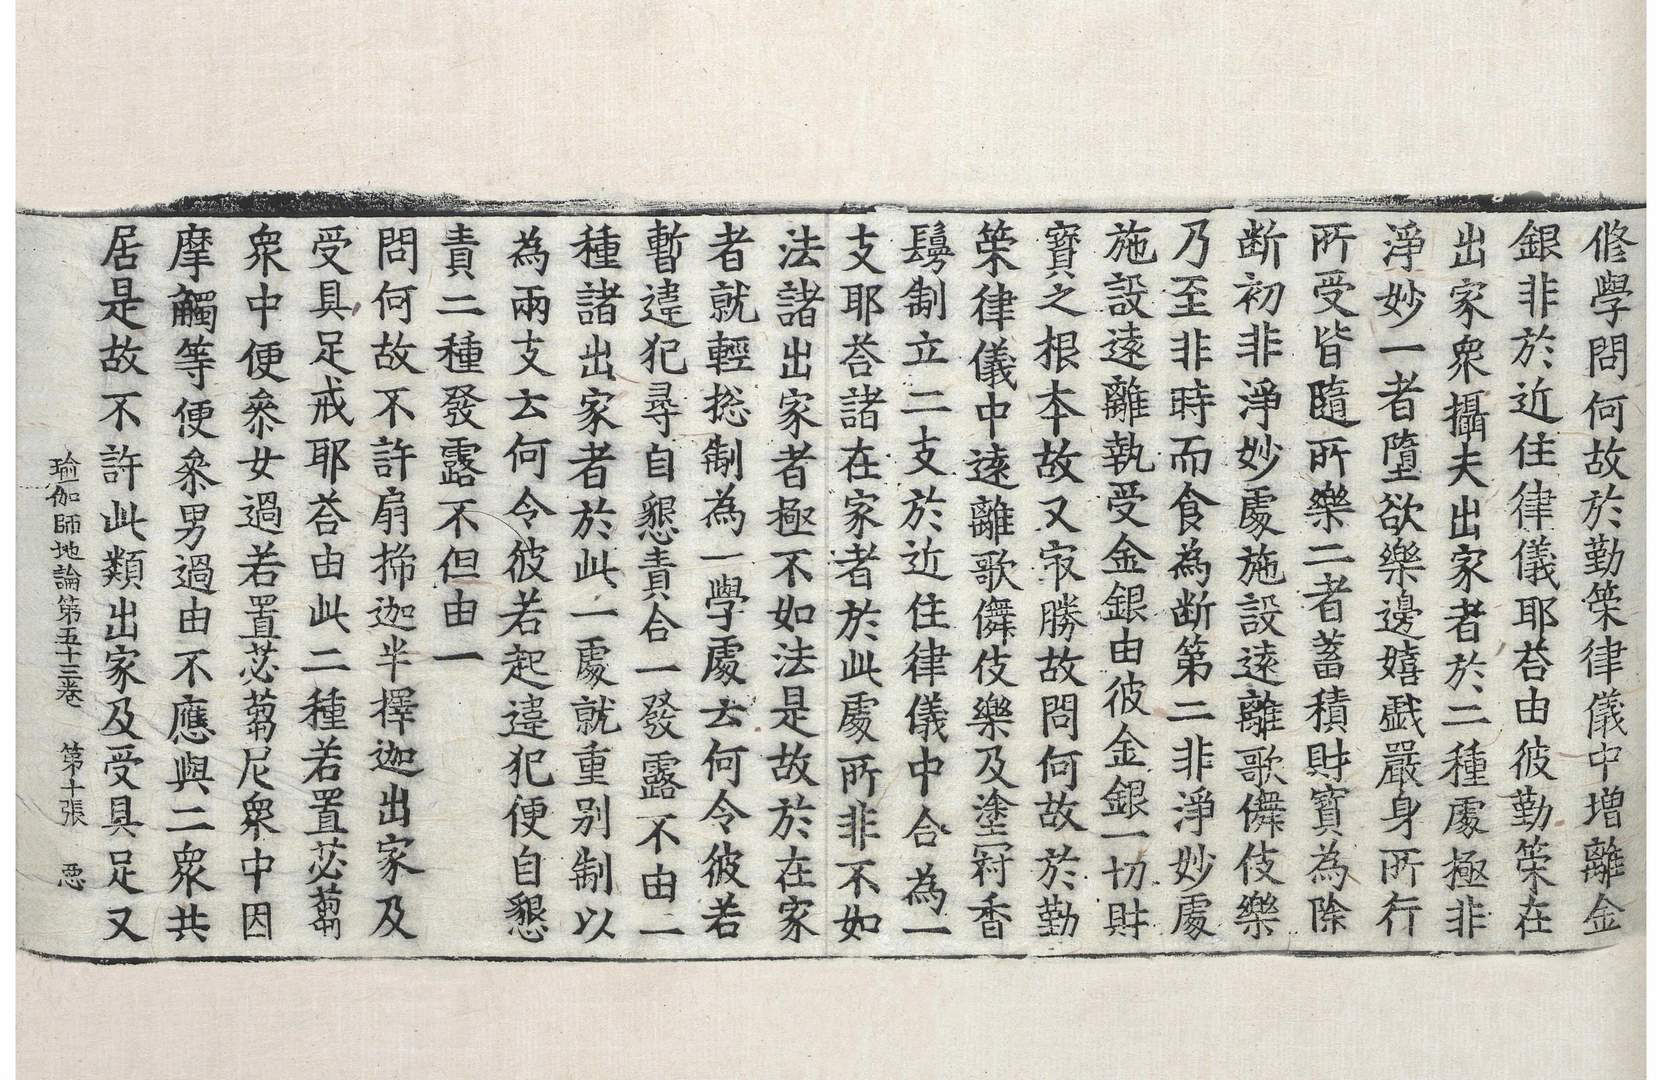 修學問何故於勤策律儀中增離金
銀非於近住律儀耶荅由彼勤策在
出家衆攝夫出家者於二種處極非
淨妙一者墮欲樂邊嬉戱嚴身所行
所受皆隨所樂二者蓄積財寶為除
断初非淨妙處施設遠離歌儛伎樂
乃至非時而食為断第二非淨妙處
施設遠離執受金銀由彼金銀一切財
寶之根本故又㝡勝故問何故於勤
策律儀中遠離歌儛伎樂及塗冠香
鬘制立二支於近住律儀中合為一
支耶荅諸在家者於此處所非不如
法諸出家者極不如法是故於在家
者就輕揔制為一學處去何令彼若
暫違犯尋自懇責合一發露不由二
種諸出家者於此一處就重別制以
為兩支去何令彼若起違犯便自懇
責二種發露不但由一
問何故不許扇搋迦半擇迦出家及
受具足戒耶荅由此二種若置苾蒭
衆中便叅女過若置苾蒭尼衆中因
摩觸等便叅男過由不應與二衆共
居是故不許此類出家及受具足又
瑜伽師地論第五十三卷 第十張 惡